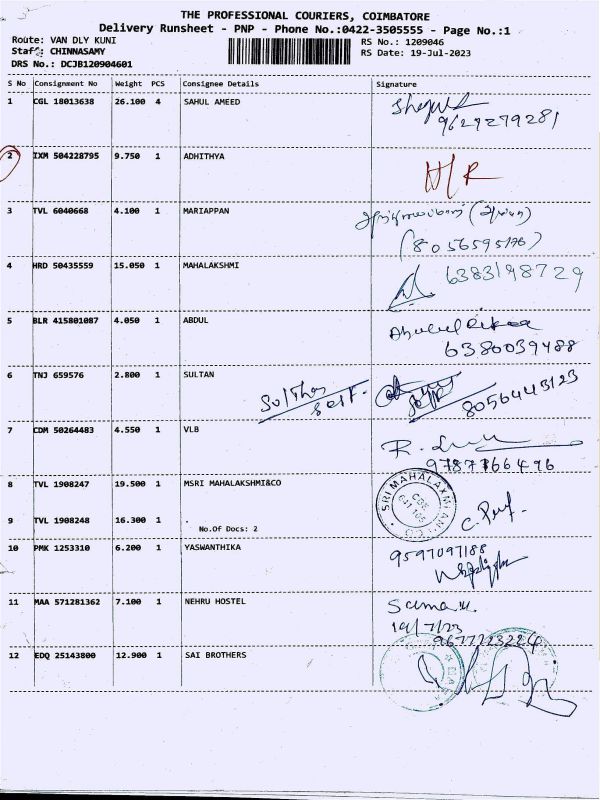 THE PROFESSIONAL COURIERS, COIMBATORE
Delivery Runsheet - PNP - Phone No.:0422-3505555 - Page No.:1
Route: VAN DLY KUNI
RS No.: 1209046
Staff: CHINNASAMY
RS Date: 19-Jul-2023
DRS No.: DCJB120904601
S No Consignment No Weight PCS Consignee Details Signature
1 CGL 18013638 26.100 4 SAHUL AMEED
9629279281
2 IXM 504228795 9.750 1 ADHITHYA
N/R
3 TVL 6040668 4.100 1 MARIAPPAN
4 HRD 50435559 15.050 1 MAHALAKSHMI 6383198729
5 BLR 415801087 4.050 1 ABDUL
6380039488
6 TNJ 659576 2.800 1 SULTAN
Self 8056443123
7 CDM 50264483 4.550 1 VLB
9787766496
8 TVL 1908247 19.500 1 MSRI MAHALAKSHMI&CO
SRI MAHALAXMI AND CO
9 TVL 1908248 16.300 1 .
No.Of Docs: 2
10 PMK 1253310 6.200 1 YASWANTHIKA
9597097188
11 MAA 571281362 7.100 1 NEHRU HOSTEL
19/7/23
12 EDQ 25143800 12.900 1 SAI BROTHERS